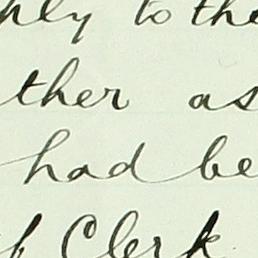 to the
ther as
had be
Clerk